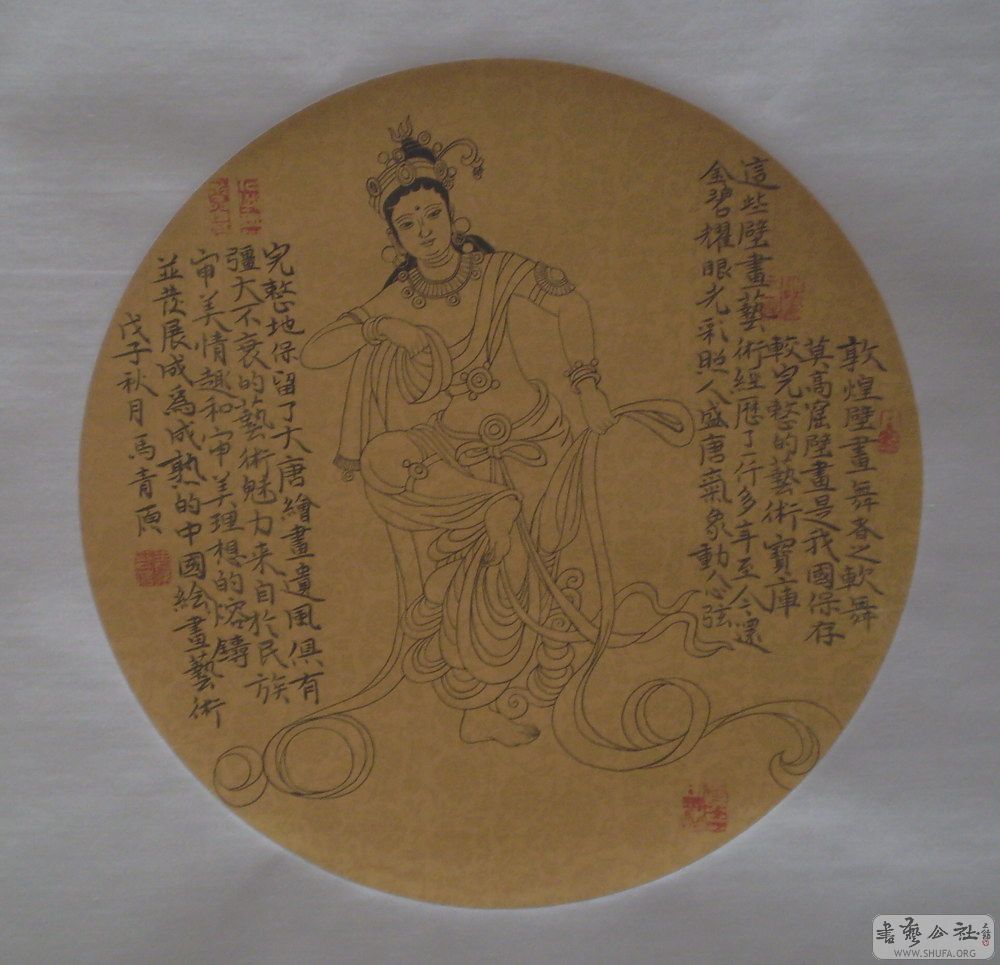 敦煌壁畫舞者之軟舞
莫高窟壁畫是我國保存
較完整的藝術寶庫
這些壁畫藝術經歷了一仟多年至今還
金碧耀眼光彩照人盛唐氣象動人心弦
完整地保留了大唐繪畫遺風俱有
彊大不衰的藝術魅力来自於民族
审美情趣和审美理想的熔鑄
並發展成為成熟的中國絵畫藝術
戊子秋月馬青
書藝公社
WWW.SHUFA.ORG